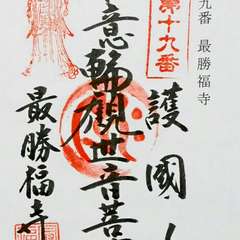 九番 最勝福寺
第十九番
護國
意輪觀世音菩
最勝福寺